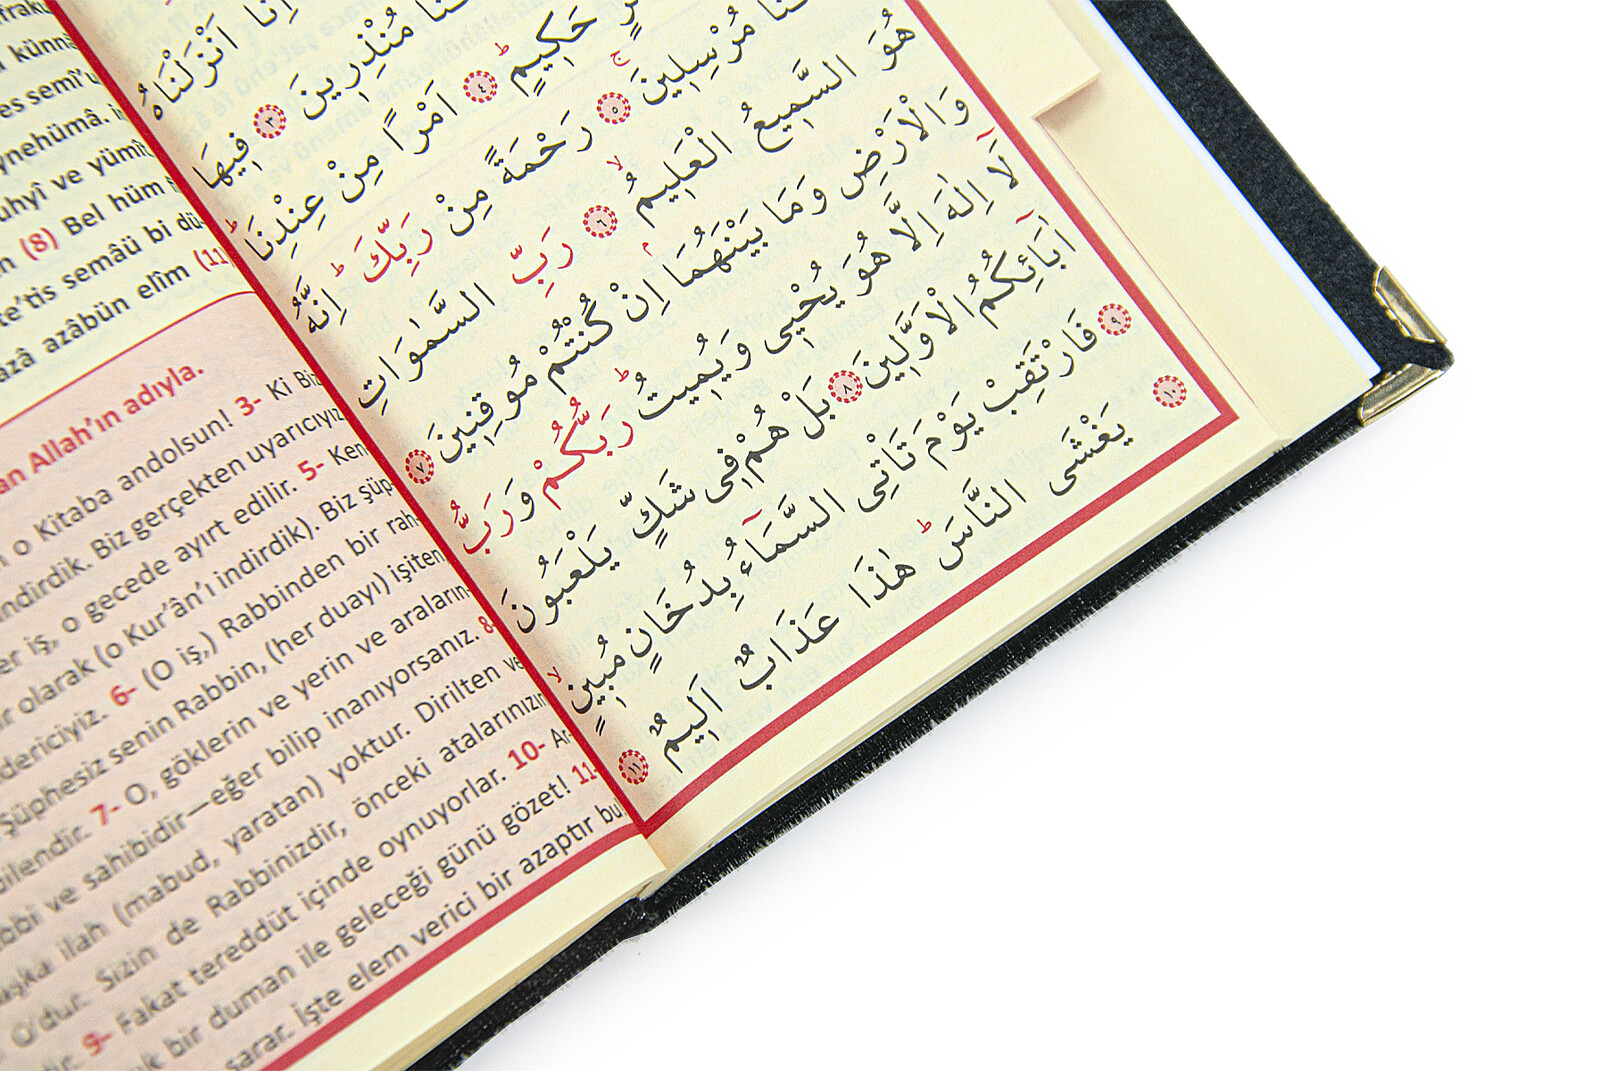 künnâ
es semî'u
ynehümâ.
uhyî ve yümît
n (8) Bel hüm
te'tis semâü bi dü-
azâ azâbün elîm (11)
an Allah'ın adıyla.
o Kitaba andolsun! 3- Ki Biz
ndirdik. Biz gerçekten uyarıcıyız
er iş, o gecede ayırt edilir. 5- Ken
ır olarak (o Kur'ân'ı indirdik). Biz şüp-
dericiyiz. 6- (O iş,) Rabbinden bir rah-
Şüphesiz senin Rabbin, (her duayı) işiten
bilendir. 7- O, göklerin ve yerin ve araların-
bbi ve sahibidir—eğer bilip inanıyorsanız. 8-
şka ilah (mabud, yaratan) yoktur. Dirilten ve
O'dur. Sizin de Rabbinizdir, önceki atalarınızın
dir. 9- Fakat tereddüt içinde oynuyorlar. 10- Ar-
k bir duman ile geleceği günü gözet! 11-
sarar. İşte elem verici bir azaptır bu.
اِنَّا اَنْزَلْنَاهُ
مُنْذِرِينَ ٣ فِيهَا
حَكِيمٍ ٤ اَمْرًا مِنْ عِنْدِنَا
مُرْسِلِينَ ٥ رَحْمَةً مِنْ رَبِّكَ اِنَّهُ
هُوَ السَّمِيعُ الْعَلِيمُ ٦ رَبِّ السَّمٰوَاتِ
وَالْاَرْضِ وَمَا بَيْنَهُمَا اِنْ كُنْتُمْ مُوقِنِينَ ٧
لَا اِلٰهَ اِلَّا هُوَ يُحْيِى وَيُمِيتُ رَبُّكُمْ وَرَبُّ
اٰبَائِكُمُ الْاَوَّلِينَ ٨ بَلْ هُمْ فِى شَكٍّ يَلْعَبُونَ
٩ فَارْتَقِبْ يَوْمَ تَاْتِى السَّمَاءُ بِدُخَانٍ مُبِينٍ
١٠ يَغْشَى النَّاسَ هٰذَا عَذَابٌ اَلِيمٌ ١١